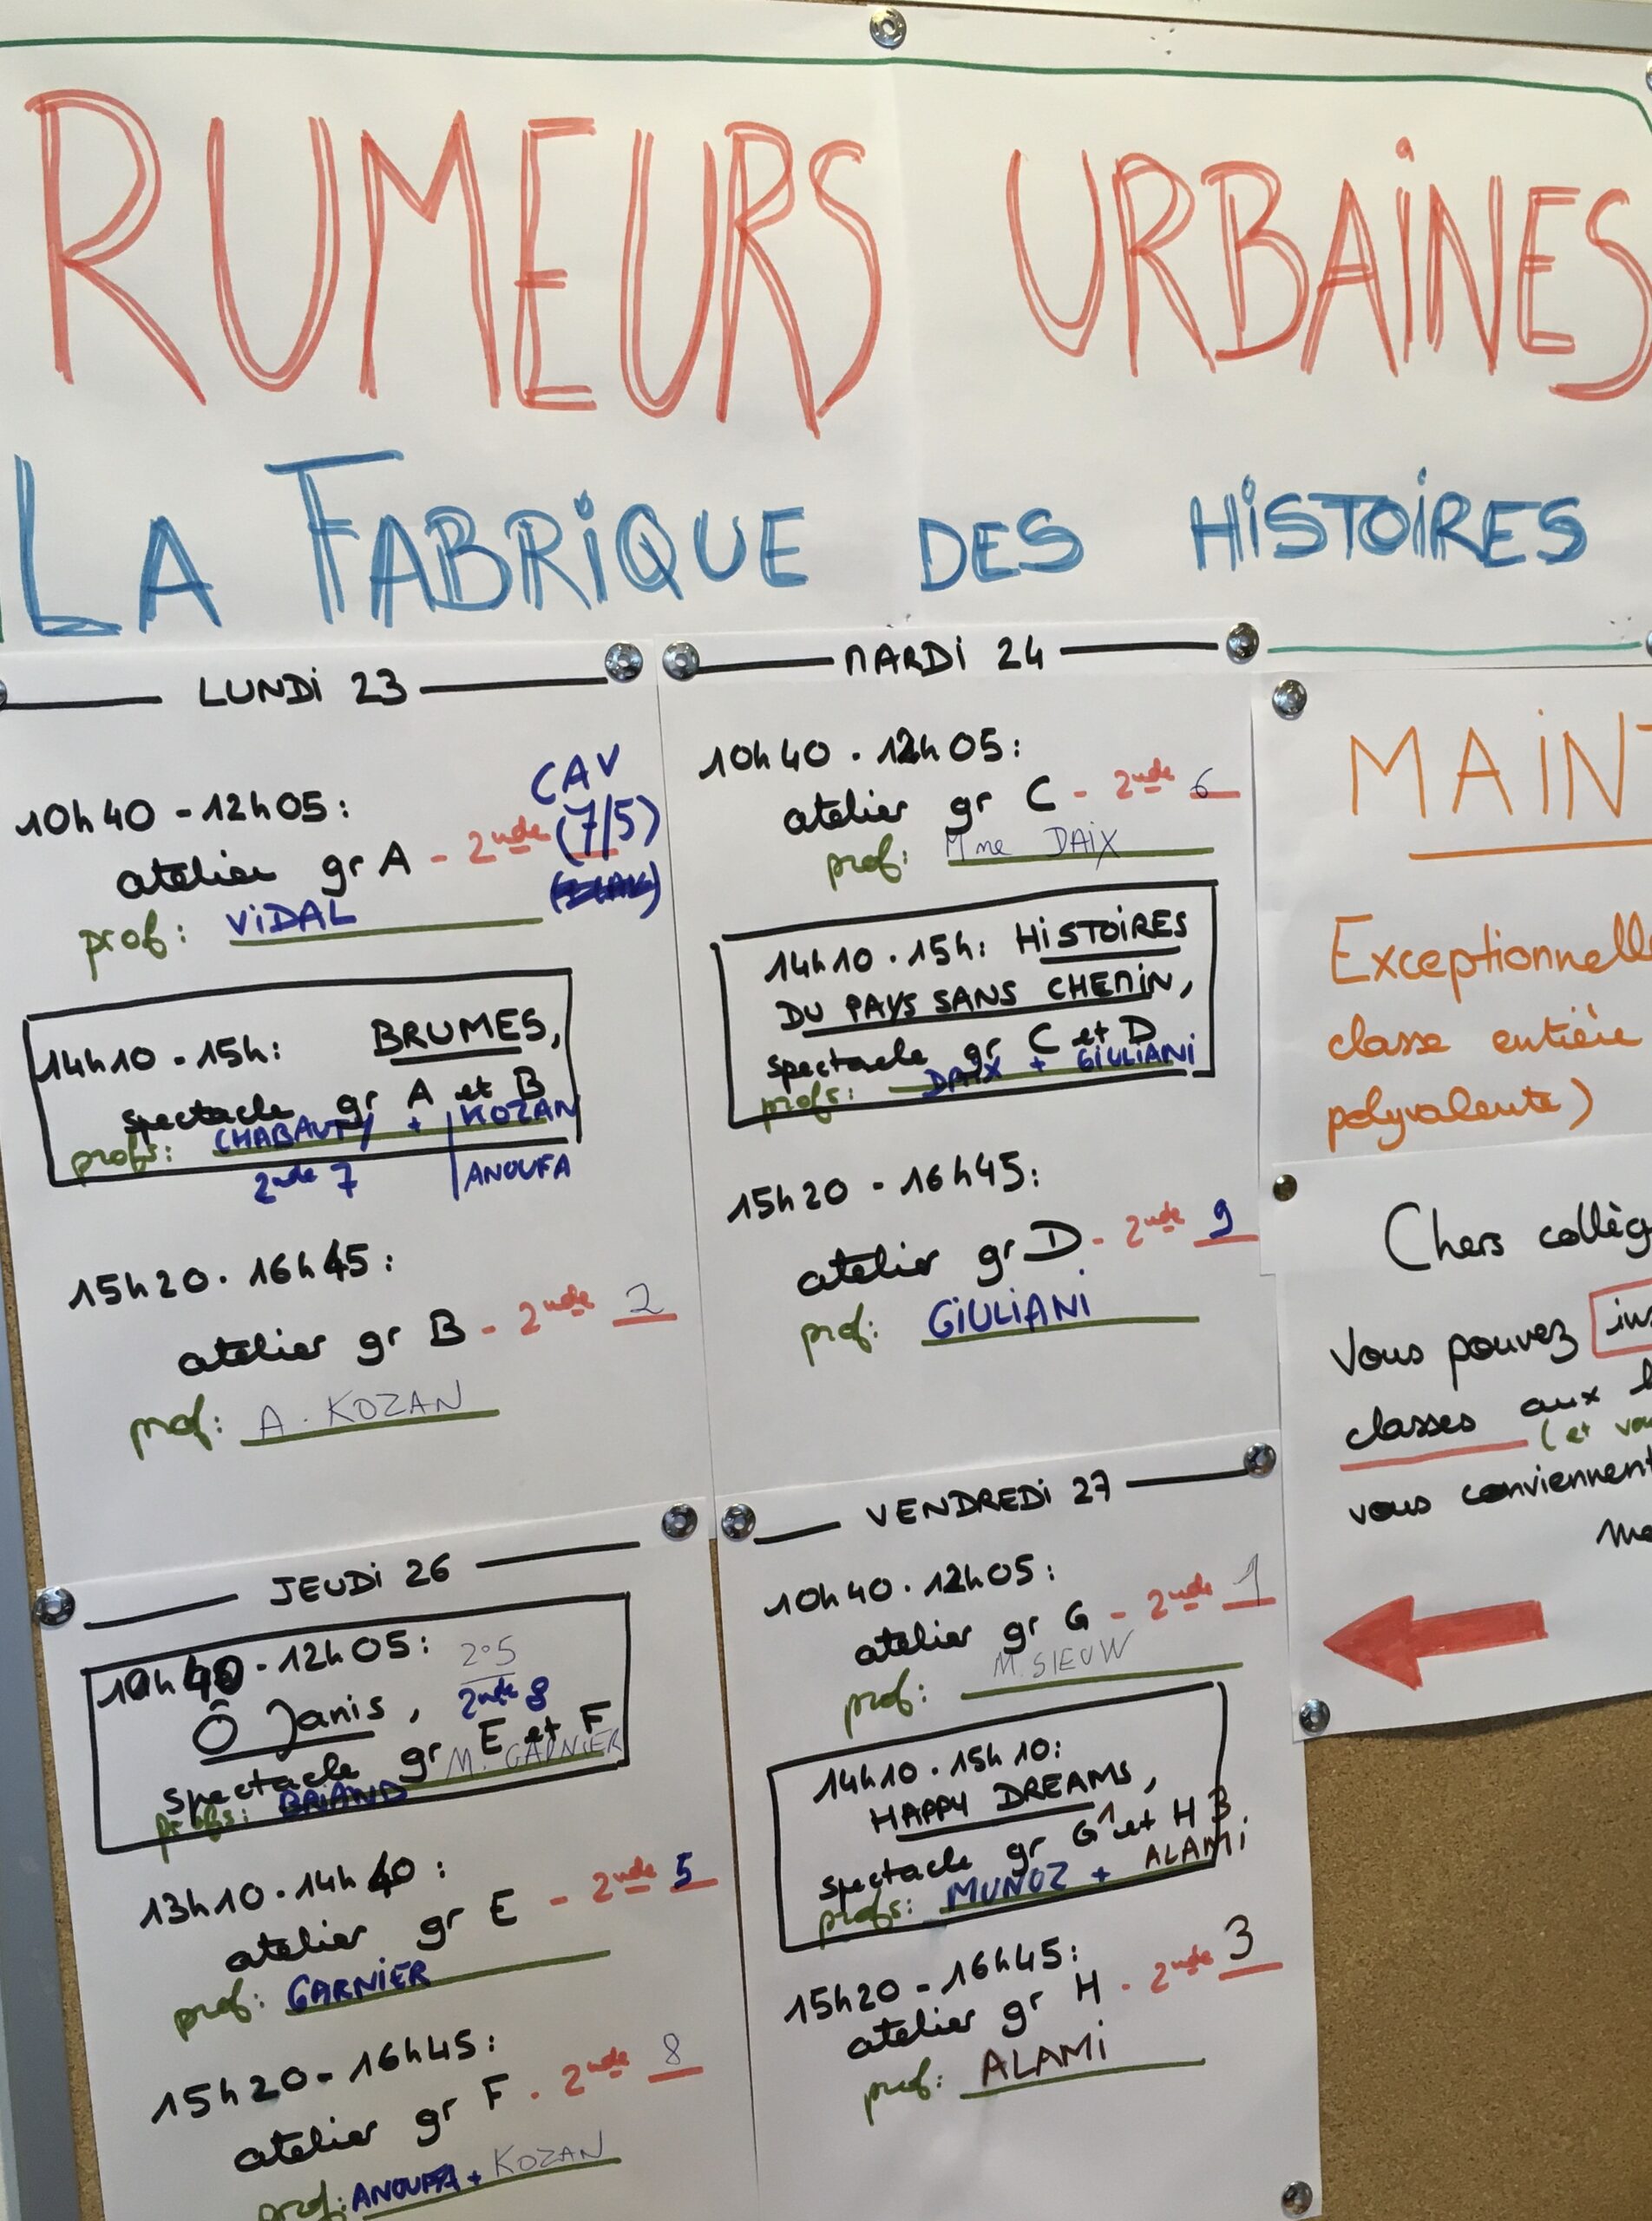 RUMEURS URBAINES
LA FABRIQUE DES HISTOIRES
LUNDI 23
10h40 - 12h05:
CAV
(7/5)
atelier gr A - 2nde
prof: VIDAL
14h10 - 15h: BRUMES,
spectacle gr A et B
profs: CHABAUTY + KOZAN
2nde 7 ANOUFA
15h20 - 16h45:
atelier gr B - 2nde 2
prof: A. KOZAN
MARDI 24
10h40 - 12h05:
atelier gr C - 2nde 6
prof: Mme DAIX
14h10 - 15h: HISTOIRES
DU PAYS SANS CHEMIN,
spectacle gr C et D
profs: DAIX + GIULIANI
15h20 - 16h45:
atelier gr D - 2nde 9
prof: GIULIANI
JEUDI 26
10h40 - 12h05: 2°5
2nde 8
Ô Janis,
spectacle gr E et F
profs: BRIAND M. GARNIER
13h10 - 14h40:
atelier gr E - 2nde 5
prof: GARNIER
15h20 - 16h45:
atelier gr F - 2nde 8
prof: ANOUFA + KOZAN
VENDREDI 27
10h40 - 12h05:
atelier gr G - 2nde 1
prof: M. SIEUW
14h10 - 15h10:
HAPPY DREAMS,
spectacle gr G 1 et H 3
profs: MUNOZ + ALAMI
15h20 - 16h45:
atelier gr H - 2nde 3
prof: ALAMI
MAINT
Exceptionnelle
classe entière
polyvalente)
Chers collèg
Vous pouvez ins
classes aux
(et vou
vous conviennent